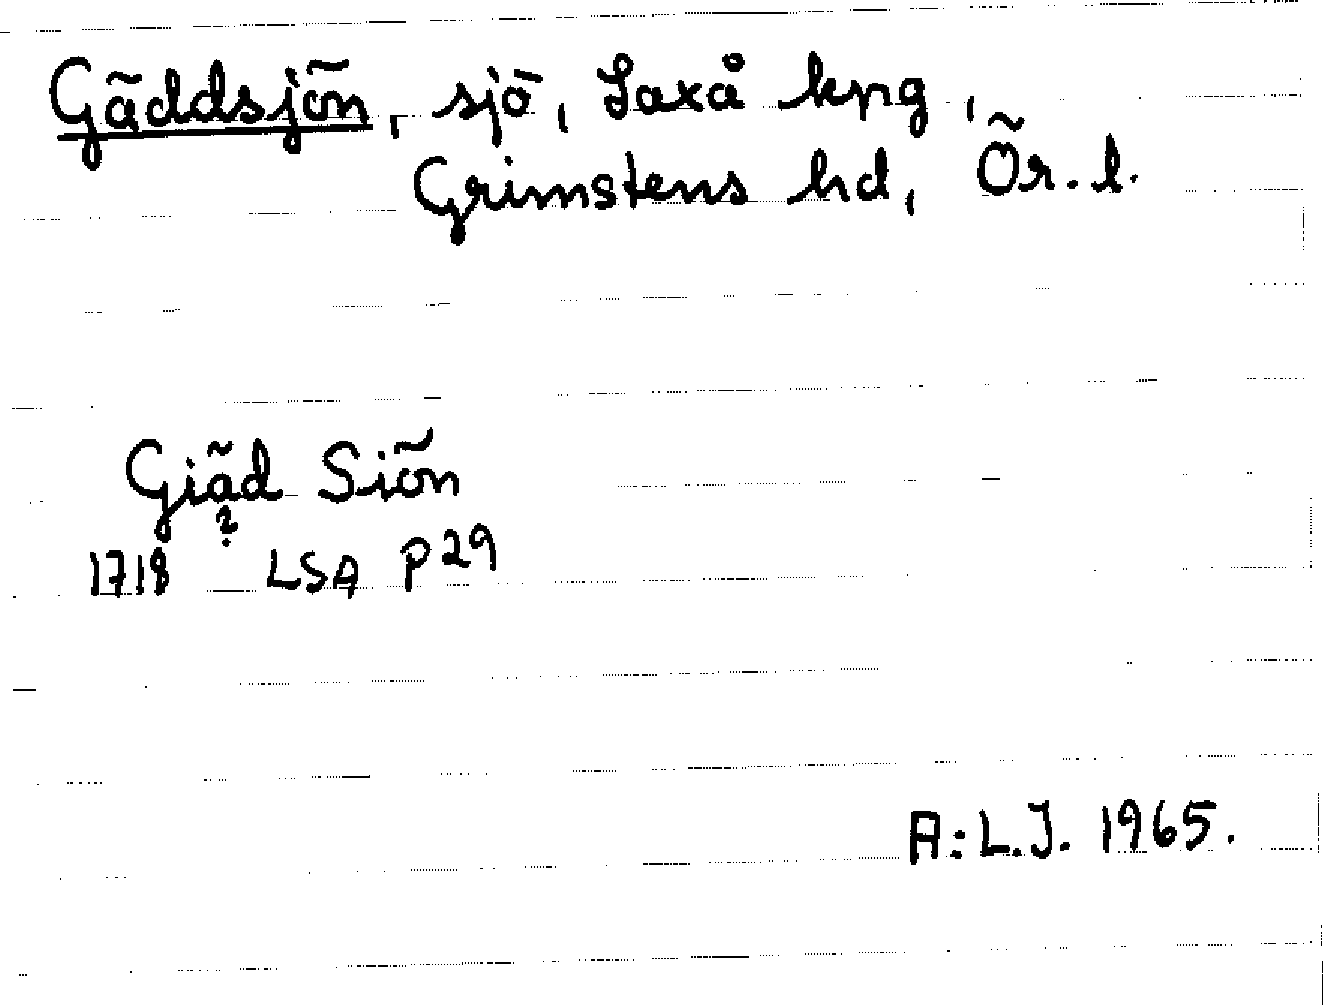 Gäddsjön, sjö, Saxå kpg,
Grimstens hd, Ör. l.
Giäd Siön
?
1718 LSA P29
A:L.J. 1965.